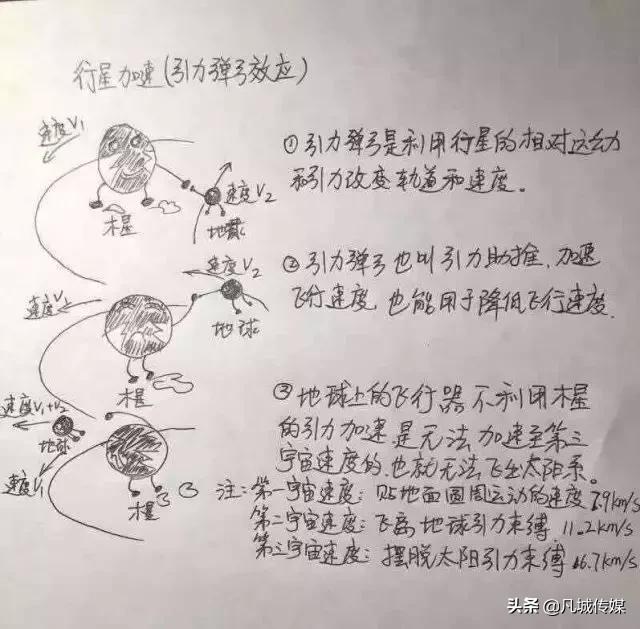 行星加速(引力弹弓效应)
速度V₁
速度V₂
木星
①引力弹弓是利用行星的相对运动
和引力改变轨道和速度。
速度V₂
速度V₁
地球
木星
②引力弹弓也叫引力助推,加速
飞行速度,也能用于降低飞行速度.
速度V₁+V₂
地球
速度V₁
木星
③地球上的飞行器不利用木星
的引力加速是无法加速至第三
宇宙速度的,也就无法飞出太阳系。
注:第一宇宙速度:贴地面圆周运动的速度7.9km/s
第二宇宙速度:飞离地球引力束缚.11.2km/s
第三宇宙速度:摆脱太阳引力束缚16.7km/s
头条@凡城传媒